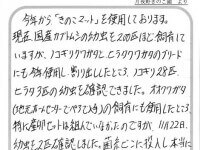 月夜野きのこ園 より
今年から「きのこマット」を使用しております。
現在国産カブトムシの幼虫を20匹ほど飼育して
いますが、ノコギリクワガタとヒラタクワガタのブリード
にも今年使用し割り出したところ、ノコギリ28匹
ヒラタ3匹の幼虫を確認できました。オオクワガタ
の飼育にも使用したところ、
特に産卵セットは組んでいなかったのですが、11月22日、
幼虫を2匹確認しました。菌糸ビンに投入し本当に